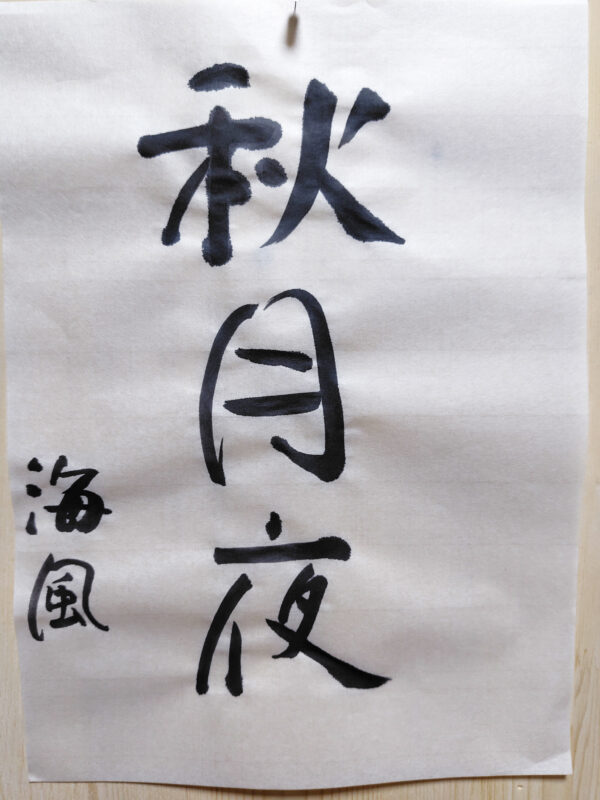 秋月夜
海風